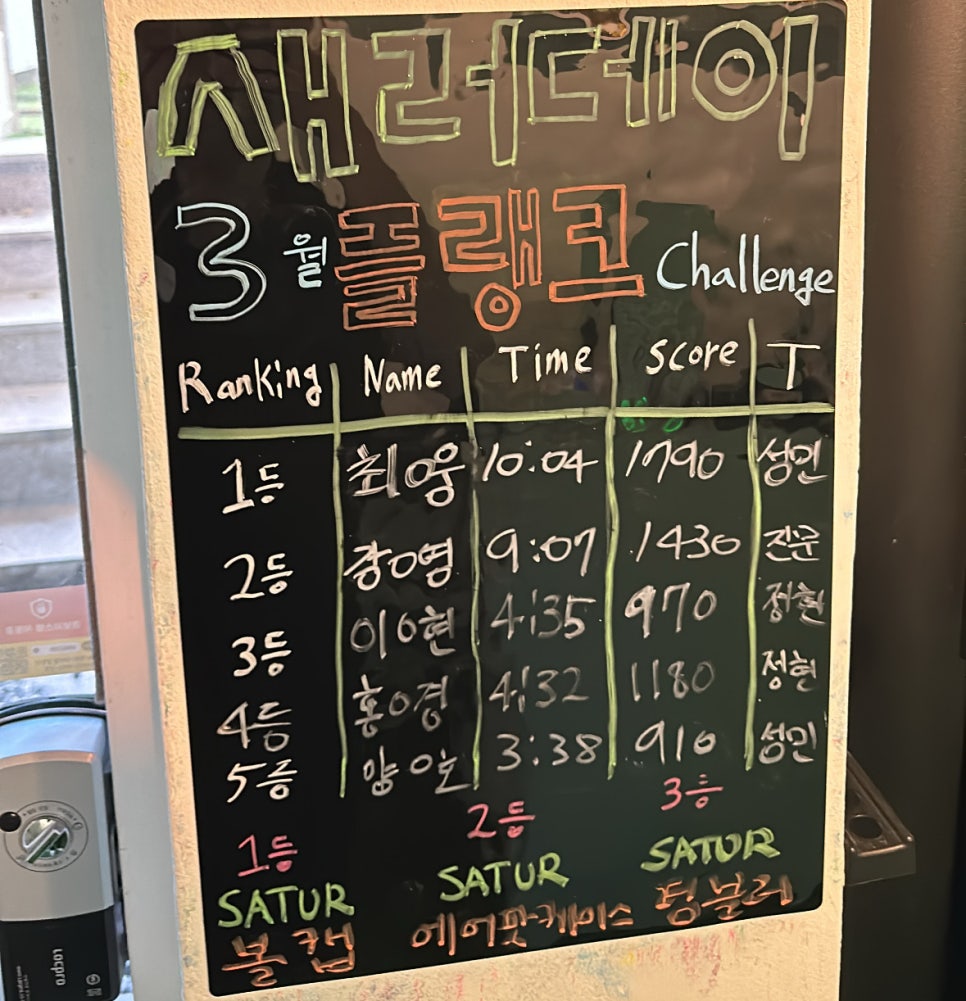 새러데이
3월 플랭크 Challenge
Ranking Name Time Score T
1등 최O웅 10:04 1790 성민
2등 장O영 9:07 1430 진문
3등 이O현 4:35 970 정현
4등 홍O경 4:32 1180 정현
5등 양O호 3:38 910 성민
1등 2등 3등
SATUR SATUR SATUR
볼캡 에어팟케이스 텀블러
locpro